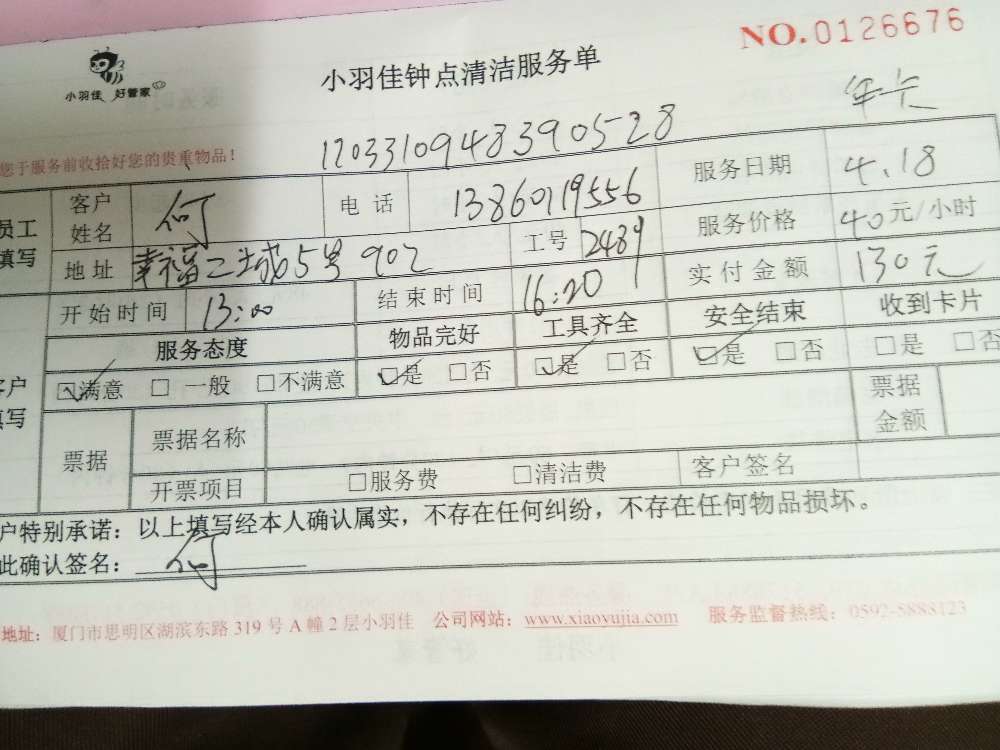 NO.0126676
小羽佳 好管家
小羽佳钟点清洁服务单
年卡
您于服务前收拾好您的贵重物品！
12033109483390528
员工填写 客户姓名 何 电话 13860119556 服务日期 4.18
地址 幸福二城5号902 工号 2489 服务价格 40元/小时
开始时间 13:00 结束时间 16:20 实付金额 130元
客户填写 服务态度 物品完好 工具齐全 安全结束 收到卡片
☑满意 □一般 □不满意 ☑是 □否 ☑是 □否 ☑是 □否 □是 □否
票据 票据名称 票据金额
开票项目 □服务费 □清洁费 客户签名
户特别承诺：以上填写经本人确认属实，不存在任何纠纷，不存在任何物品损坏。
此确认签名：何
地址：厦门市思明区湖滨东路 319 号 A 幢 2 层小羽佳 公司网站：www.xiaoyujia.com 服务监督热线：0592-5888123